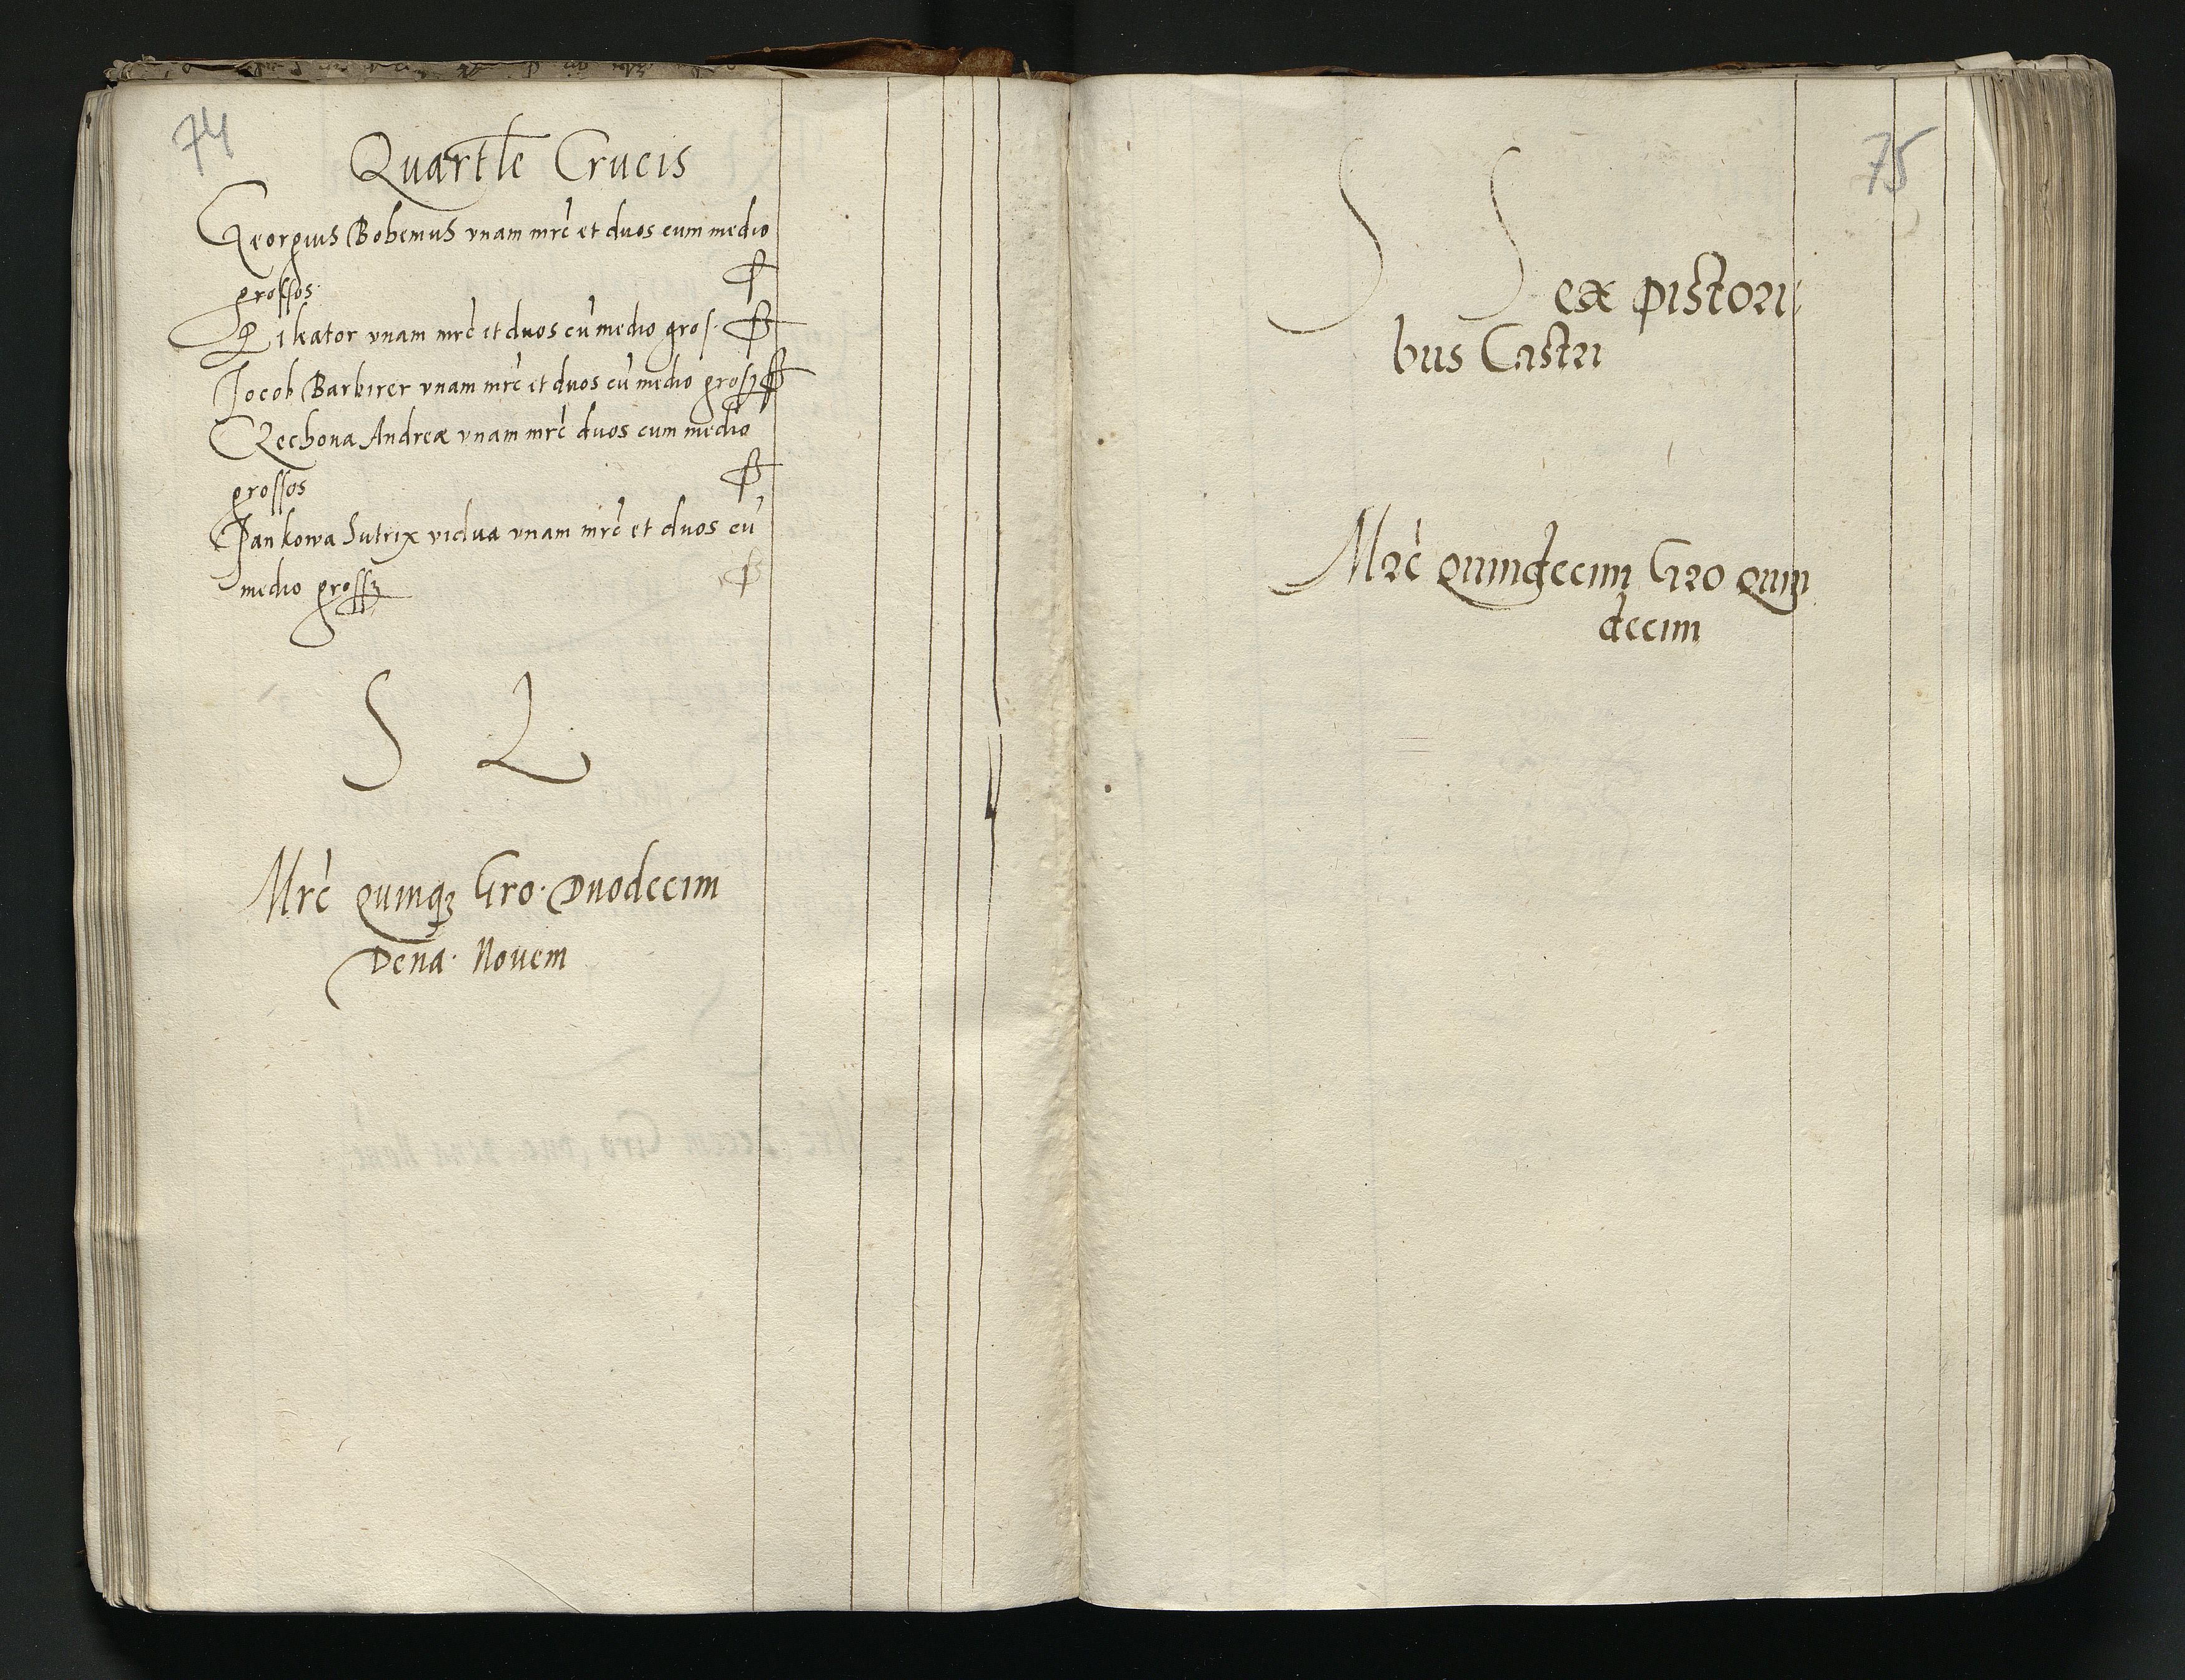 74
Quartle Crucis
Georgius Bohemus vnam mrc et duos cum medio
grossos
Pikator vnam mrc et duos cu medio gros.
Jocob Barbirer vnam mrc et duos cu medio gros
Rechona Andreæ vnam mrc duos cum medio
grossos
Pankowa Sutrix vidua vnam mrc et duos cu
medio gross
S L
Mrc quinq3 Gro. Duodecim
Dena. Nouem
75
S S
ex pistori
bus Castri
Mrc quindecim Gro quin
decim